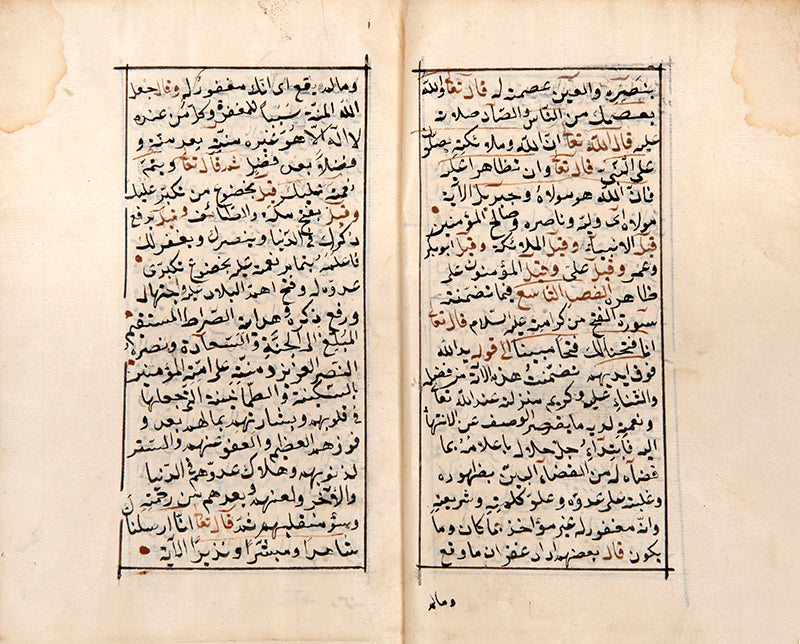 بنصره والعين عصمته له قال تعا والله
يعصمك من الناس والصاد صلاته
عليه قال الله تعا ان الله وملائكته يصلون
على النبى قال تعا وان تظاهرا عليه
فان الله هو مولاه وجبريل الآية
مولاه اى وليه وناصره وصالح المؤمنين
قيل الانبياء وقيل الملائكة وقيل ابو بكر
وعمر وقيل على وقيل المؤمنون على
ظاهره الفصل التاسع فيما تضمنته
سورة الفتح من كرامته عليه السلام قال تعا
انا فتحنا لك فتحا مبينا الى قوله يد الله
فوق ايديهم تضمنت هذه الآية من فضله
والثناء عليه وكريم منزلته عند الله تعا
ونعمته لديه ما يقصر الوصف عن الانتهاء
اليه فابتداء جل جلاله باعلامه بما
قضاه له من القضاء البين بظهوره
وغلبته على عدوه وعلو كلمته وشريعته
وانه مغفور له غير مؤاخذ بما كان وما
يكون قال بعضهم اراد غفران ما وقع
ومالم
ومالم يقع اى انك مغفور له وقال جعل
الله المنة سببا للمغفرة وكل من عنده
لا اله الا هو غيره منة بعد منة و
فضلا بعد فضل ثم قال تعا ويتم
نعمته عليك قيل بخضوع من تكبر عليك
وقيل بفتح مكة والطائف وقيل يرفع
ذكرك فى الدنيا وينصرك ويغفر لك
فاعلمه بتمام نعمته عليه بخضوع متكبرى
عدوه له وفتح اهم البلاد عليه واحبها له
ورفع ذكره وهدايته الصراط المستقيم
المبلغ الى الجنة والسعادة ونصره
النصر العزيز ومنته على امته المؤمنين
بالسكينة والطمأنينة التى جعلها
فى قلوبهم وبشارتهم بمالهم بعد و
فوزهم العظيم والعفو عنهم والستر
لذنوبهم وهلاك عدوهم فى الدنيا
والآخرة ولعنهم وبعدهم من رحمته
وسوء منقلبهم ثم قال تعا انا ارسلناك
شاهدا ومبشرا ونذيرا الآية